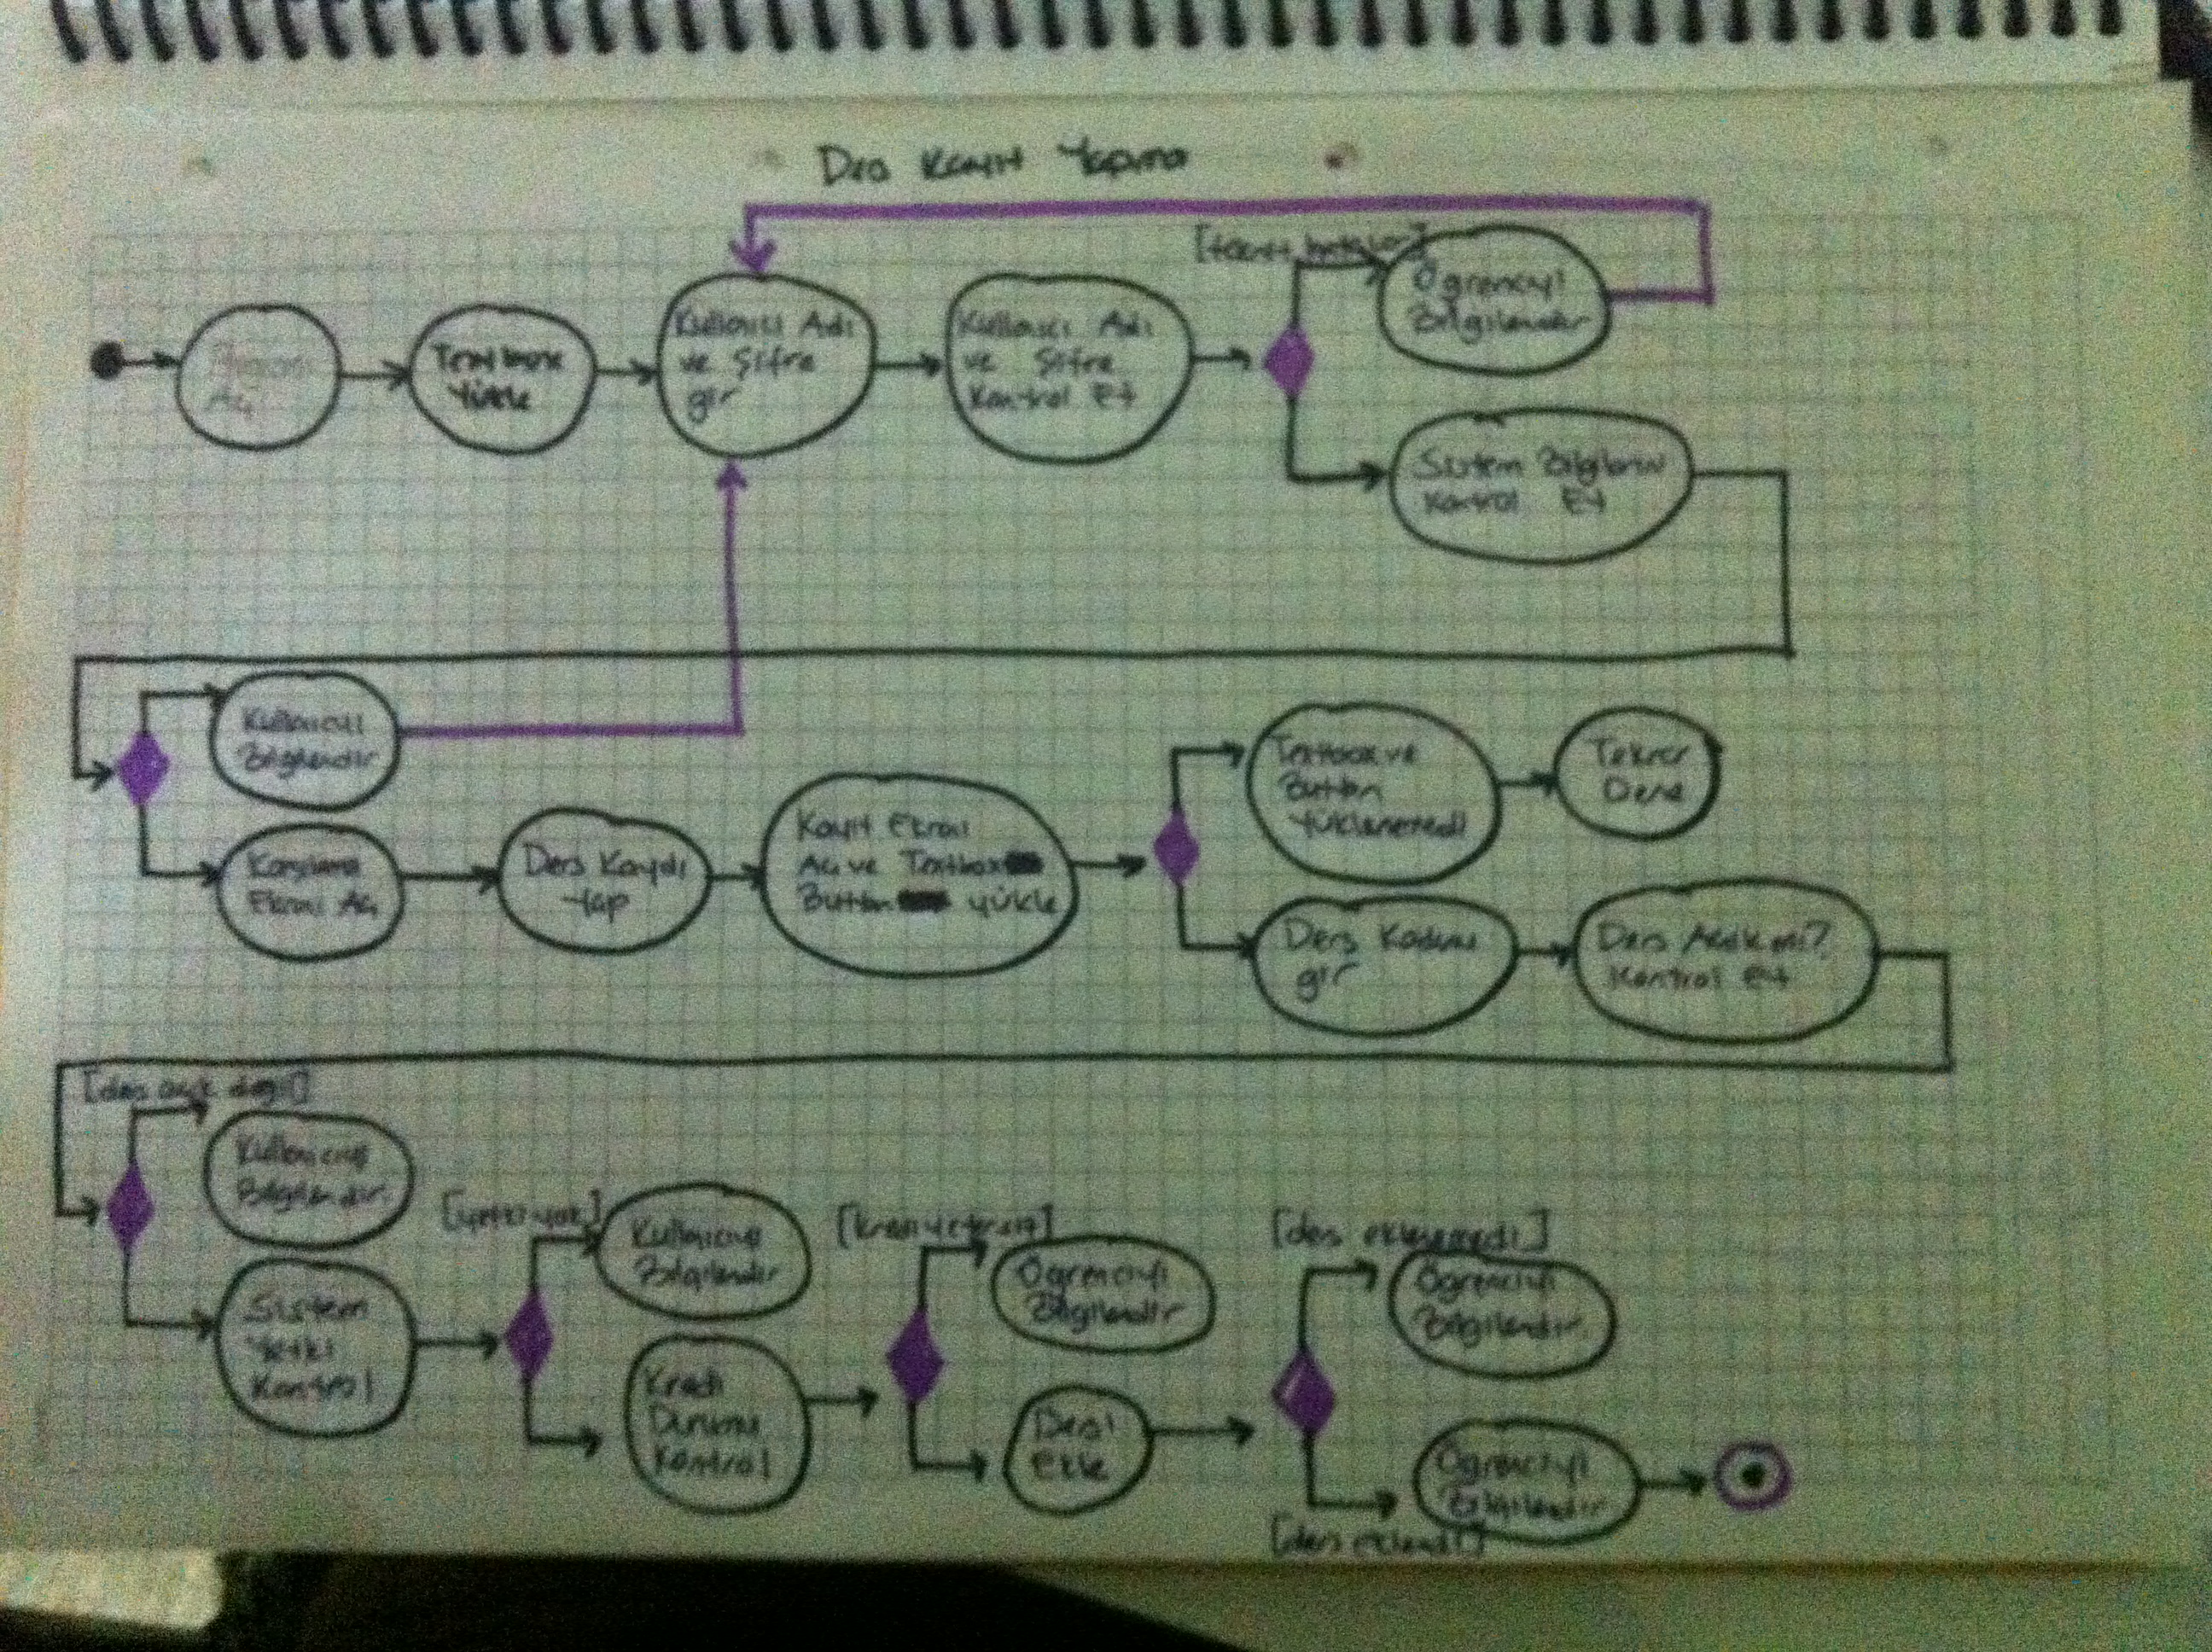 Ders Kayıt Yapma
Aç
Textbox
Yükle
Kullanıcı Adı
ve Şifre
gir
Kullanıcı Adı
ve Şifre
Kontrol Et
Öğrenciyi
Bilgilendir
Sistem Bilgilerini
Kontrol Et
Kullanıcıyı
Bilgilendir
Karşılama
Ekranı Aç
Ders Kaydı
Yap
Kayıt Ekranı
Aç ve Textbox
Button yükle
Textbox ve
Button
Yüklenemedi
Tekrar
Dene
Ders Kodunu
gir
Ders Açık mı?
Kontrol Et
[ders açık değil]
Kullanıcıyı
Bilgilendir.
Sistem
Yetki
Kontrol
[yetki yok]
Kullanıcıyı
Bilgilendir
Kredi
Durumu
Kontrol
[kredi yetersiz]
Öğrenciyi
Bilgilendir
Dersi
Ekle
[ders eklenemedi]
Öğrenciyi
Bilgilendir.
Öğrenciyi
Bilgilendir
[ders eklendi]